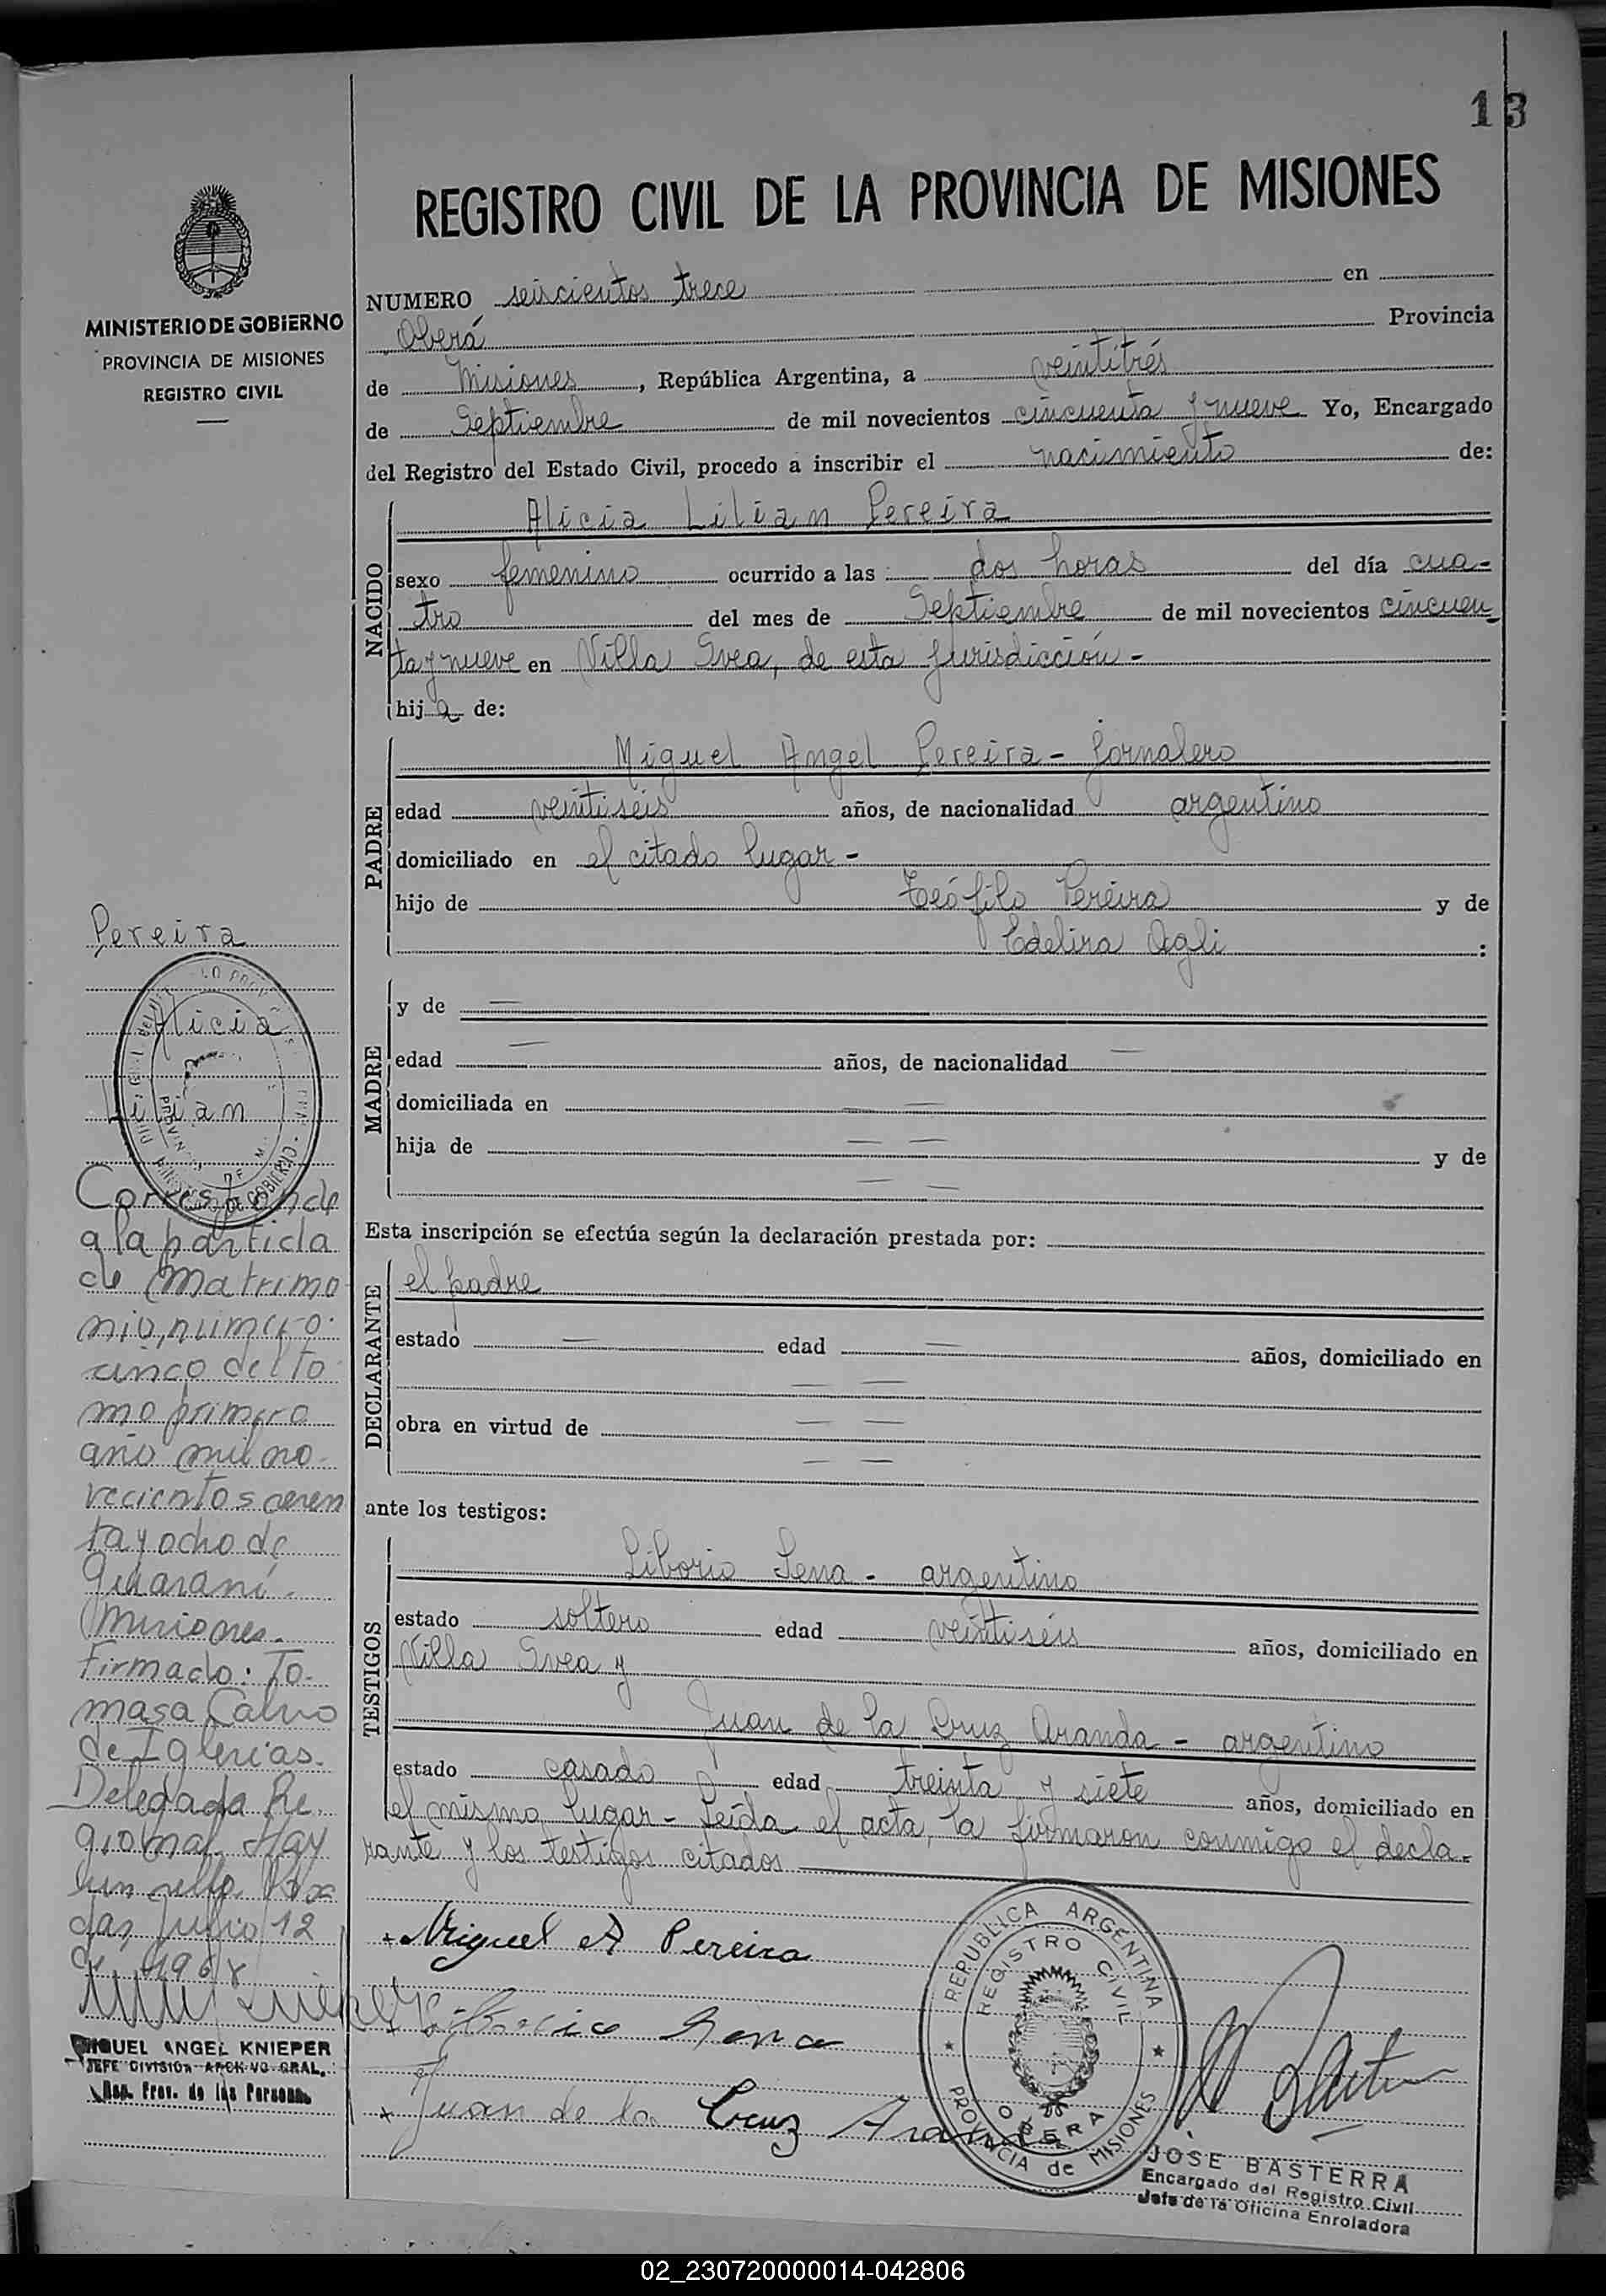 13
REGISTRO CIVIL DE LA PROVINCIA DE MISIONES
MINISTERIO DE GOBIERNO
PROVINCIA DE MISIONES
REGISTRO CIVIL
NUMERO seiscientos trece en
Oberá Provincia
de Misiones, República Argentina, a veintitrés
de Septiembre de mil novecientos cincuenta y nueve Yo, Encargado
del Registro del Estado Civil, procedo a inscribir el nacimiento de:
NACIDO
Alicia Lilian Pereira
sexo femenino ocurrido a las dos horas del día cua-
tro del mes de Septiembre de mil novecientos cincuen
ta y nueve en Villa Svea, de esta Jurisdicción -
hij a de:
PADRE
Miguel Angel Pereira - Jornalero
edad veintiseis años, de nacionalidad argentino
domiciliado en el citado lugar -
hijo de Teófilo Pereira y de
Edelira Agli :
MADRE
y de —
edad — años, de nacionalidad —
domiciliada en — —
hija de — — y de
— —
Esta inscripción se efectúa según la declaración prestada por:
DECLARANTE
el padre
estado — edad — años, domiciliado en
— —
obra en virtud de — —
— —
ante los testigos:
TESTIGOS
Liborio Sena - argentino
estado soltero edad veintiséis años, domiciliado en
Villa Svea y
Juan de la Cruz Aranda - argentino
estado casado edad treinta y siete años, domiciliado en
el mismo lugar - Leída el acta, la firmaron conmigo el decla-
rante y los testigos citados
+ Miguel A Pereira
+ Liborio Sena
+ Juan de la Cruz Aranda
REPUBLICA ARGENTINA
REGISTRO CIVIL
OBERA
PROVINCIA de MISIONES
JOSE BASTERRA
Encargado del Registro Civil
Jefe de la Oficina Enroladora
Pereira
Alicia
Lilian
Corresponde
a la partida
de matrimo
nio, numero
cinco del to
mo primero
año mil no-
vecientos
ta y ocho de
Guaraní -
Misiones.
Firmado: To-
masa Calvo
de Iglesias.
Delegada Re.
gional. Hay
un sello. Posa
das, Julio 12
de 1968
MIGUEL ANGEL KNIEPER
JEFE DIVISION ARCHIVO GRAL.
Rep. Prov. de las Personas
02_230720000014-042806